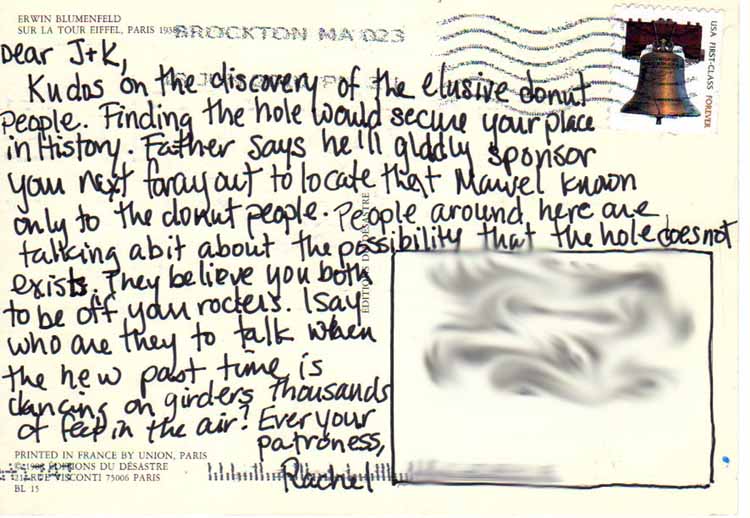 ERWIN BLUMENFELD
SUR LA TOUR EIFFEL, PARIS 1938
BROCKTON MA 023
USA FIRST-CLASS FOREVER
Dear J+K,
Kudos on the discovery of the elusive donut
People. Finding the hole would secure your place
in History. Father says he'll gladly sponsor
your next foray out to locate that Marvel known
only to the donut people. People around here are
talking abit about the possibility that the hole does not
exists. They believe you both
to be off your rockers. I say
who are they to talk when
the new past time is
dancing on girders thousands
of feet in the air! Ever your
patroness,
Rachel
EDITIONS DU DÉSASTRE
PRINTED IN FRANCE BY UNION, PARIS
ÉDITIONS DU DÉSASTRE
RUE VISCONTI 75006 PARIS
BL 15